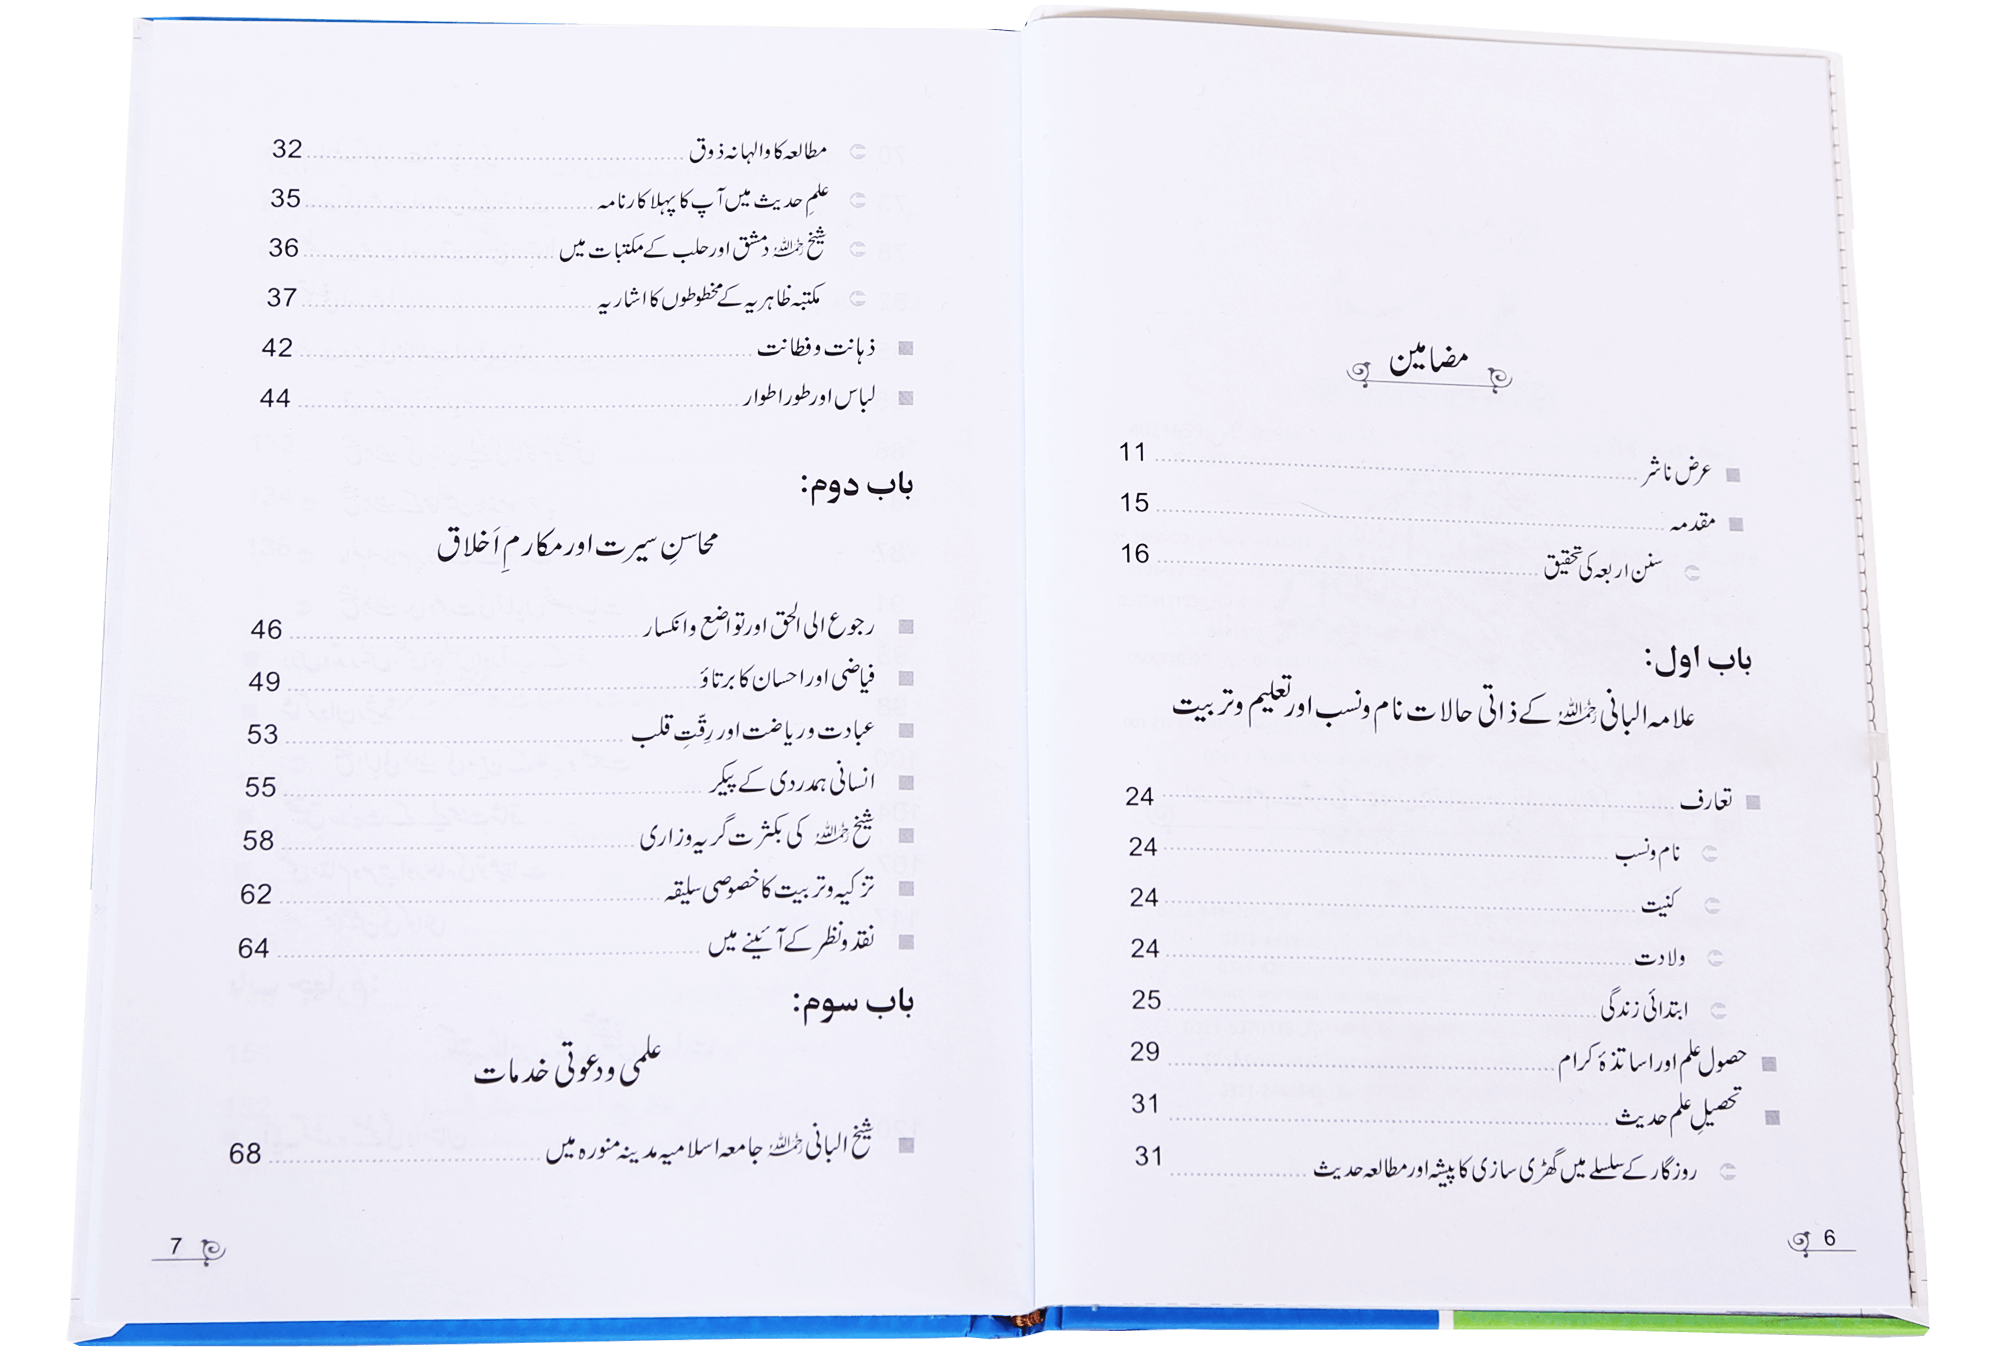 مضامین
عرض ناشر 11
مقدمہ 15
سنن اربعہ کی تحقیق 16
باب اول:
علامہ البانی رحمہ اللہ کے ذاتی حالات نام و نسب اور تعلیم و تربیت
تعارف 24
نام و نسب 24
کنیت 24
ولادت 24
ابتدائی زندگی 25
حصول علم اور اساتذۂ کرام 29
تحصیلِ علم حدیث 31
روزگار کے سلسلے میں گھڑی سازی کا پیشہ اور مطالعہ حدیث 31
6
مطالعہ کا والہانہ ذوق 32
علمِ حدیث میں آپ کا پہلا کارنامہ 35
شیخ رحمہ اللہ دمشق اور حلب کے مکتبات میں 36
مکتبہ ظاہریہ کے مخطوطوں کا اشاریہ 37
ذہانت و فطانت 42
لباس اور طور اطوار 44
باب دوم:
محاسنِ سیرت اور مکارمِ اَخلاق
رجوع الی الحق اور تواضع و انکسار 46
فیاضی اور احسان کا برتاؤ 49
عبادت و ریاضت اور رِقّتِ قلب 53
انسانی ہمدردی کے پیکر 55
شیخ رحمہ اللہ کی بکثرت گریہ و زاری 58
تزکیہ و تربیت کا خصوصی سلیقہ 62
نقد و نظر کے آئینے میں 64
باب سوم:
علمی و دعوتی خدمات
شیخ البانی رحمہ اللہ جامعہ اسلامیہ مدینہ منورہ میں 68
7